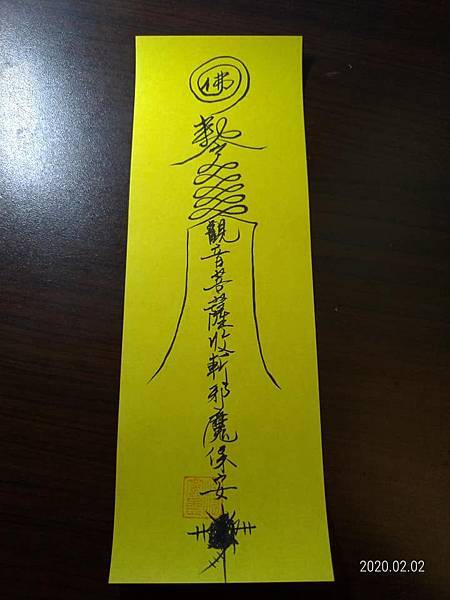 佛
敕令
觀音菩薩收斬邪魔保安
2020.02.02